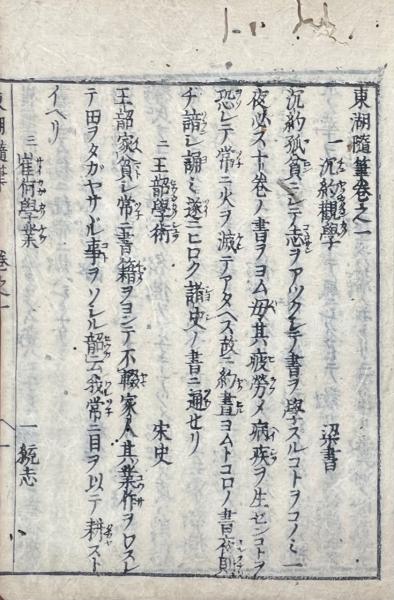 東湖隨筆卷之一
一 沉約觀學 梁書
沉約孤貧ニシテ志ヲアツクシテ書ヲ學スルコトヲコノミ一
夜必ス十卷ノ書ヲヨム母其疲勞メ病疾ヲ生センコトヲ
恐レテ常ニ火ヲ滅テアタヘス故ニ約書ヨムトコロノ書夜則
ヂ諳シ誦ミ遂ニヒロク諸史ノ書ニ通せリ
二 王韶學術 宋史
王韶家貧シ常ニ書籍ヲヨンテ不輟家人其業作ヲロスレ
テ田ヲタガヤサヽル事ヲソシル韶云我常ニ目ヲ以テ耕スト
イヘリ
三 崔何學業 一統志
東湖隨筆 卷之一